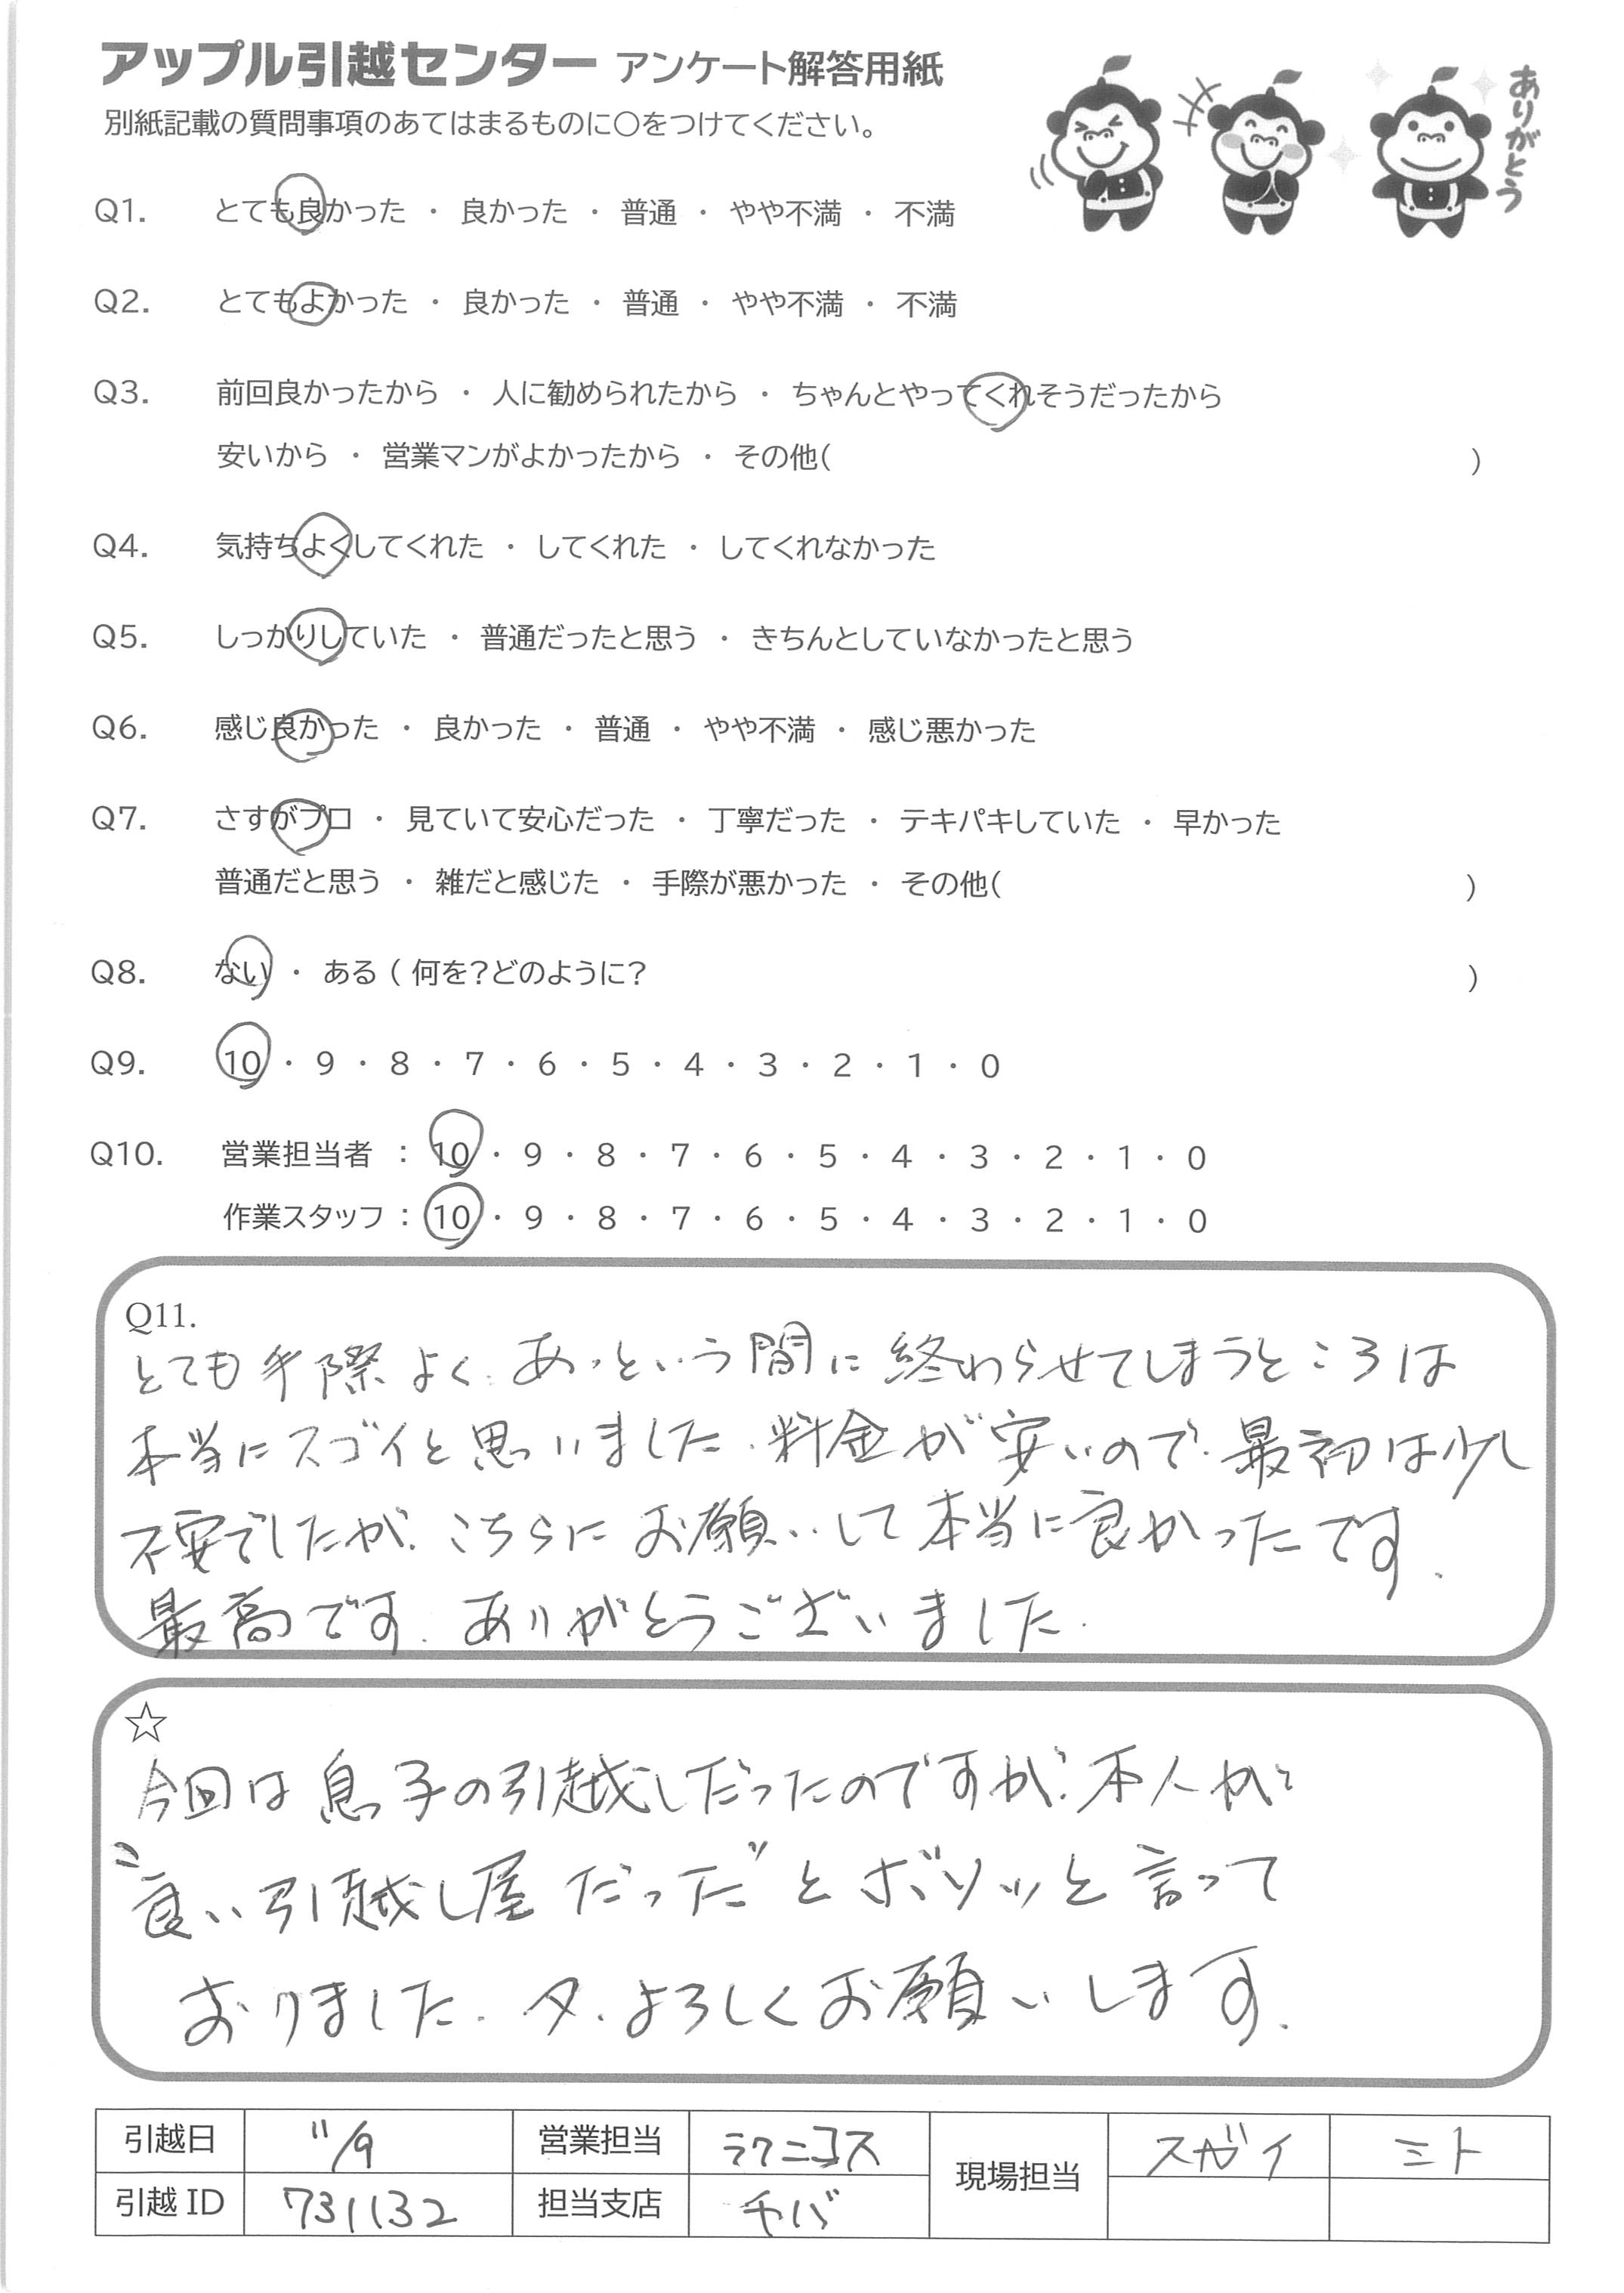 アップル引越センター アンケート解答用紙
ありがとう
別紙記載の質問事項のあてはまるものに○をつけてください。
Q1. とても良かった ・ 良かった ・ 普通 ・ やや不満 ・ 不満
Q2. とてもよかった ・ 良かった ・ 普通 ・ やや不満 ・ 不満
Q3. 前回良かったから ・ 人に勧められたから ・ ちゃんとやってくれそうだったから
安いから ・ 営業マンがよかったから ・ その他( )
Q4. 気持ちよくしてくれた ・ してくれた ・ してくれなかった
Q5. しっかりしていた ・ 普通だったと思う ・ きちんとしていなかったと思う
Q6. 感じ良かった ・ 良かった ・ 普通 ・ やや不満 ・ 感じ悪かった
Q7. さすがプロ ・ 見ていて安心だった ・ 丁寧だった ・ テキパキしていた ・ 早かった
普通だと思う ・ 雑だと感じた ・ 手際が悪かった ・ その他( )
Q8. ない ・ ある ( 何を?どのように? )
Q9. 10 ・ 9 ・ 8 ・ 7 ・ 6 ・ 5 ・ 4 ・ 3 ・ 2 ・ 1 ・ 0
Q10. 営業担当者 : 10 ・ 9 ・ 8 ・ 7 ・ 6 ・ 5 ・ 4 ・ 3 ・ 2 ・ 1 ・ 0
作業スタッフ : 10 ・ 9 ・ 8 ・ 7 ・ 6 ・ 5 ・ 4 ・ 3 ・ 2 ・ 1 ・ 0
Q11.
とても手際よく、あっという間に終わらせてしまうところは
本当にスゴイと思いました。料金が安いので、最初は少し
不安でしたが、こちらにお願いして本当に良かったです。
最高です。ありがとうございました。
☆
今回は息子の引越しだったのですが、本人が
"良い引越し屋だった"とボソッと言って
おりました。又、よろしくお願いします。
引越日 11/9 営業担当 ラクニコス 現場担当 スガイ ミト
引越 ID 731132 担当支店 チバ